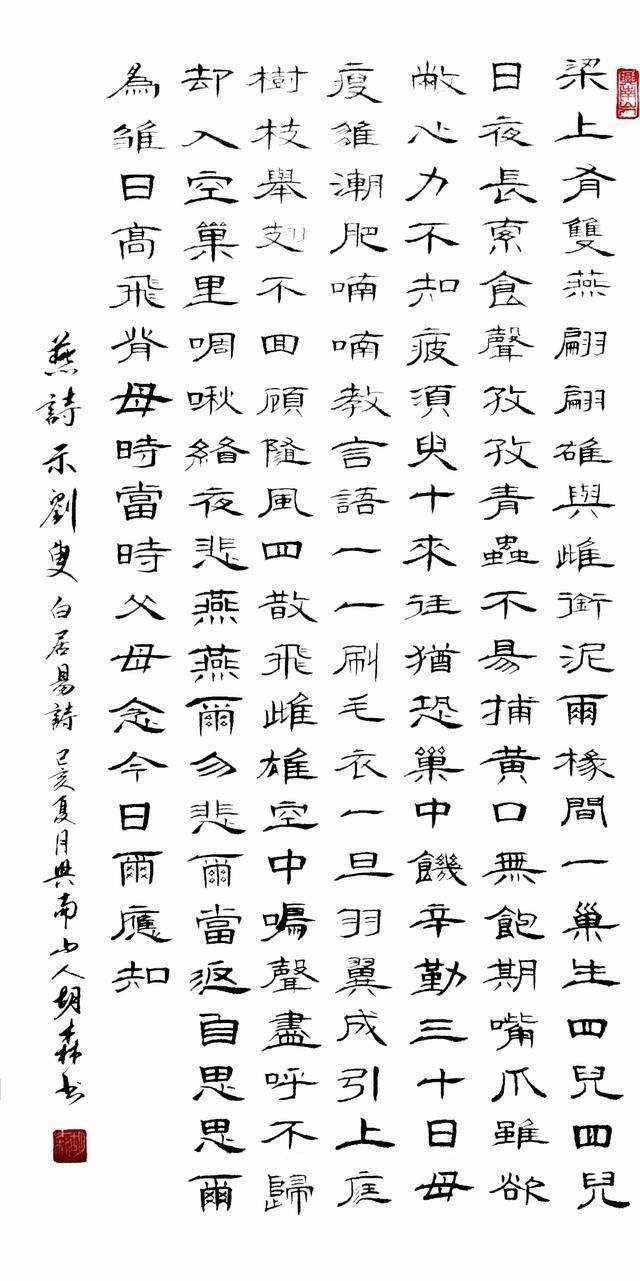 梁上有雙燕翩翩雄與雌銜泥爾椽間一巢生四兒四兒
日夜長索食聲孜孜青蟲不易捕黃口無飽期嘴爪雖欲
敝心力不知疲須臾十來往猶恐巢中饑辛勤三十日母
瘦雛漸肥喃喃教言語一一刷毛衣一旦羽翼成引上庭
樹枝舉翅不回顧隨風四散飛雌雄空中鳴聲盡呼不歸
却入空巢里啁啾終夜悲燕燕爾勿悲爾當返自思思爾
為雛日高飛背母時當時父母念今日爾應知
燕詩示劉叟 白居易詩 己亥夏月興南山人胡森书